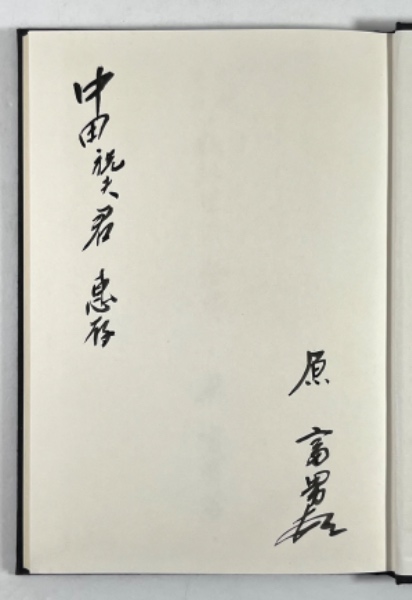 中田祝夫君 惠存
原 富男